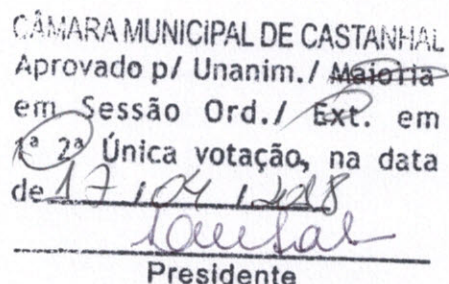 CÂMARA MUNICIPAL DE CASTANHAL
Aprovado p/ Unanim./ Maioria
em Sessão Ord./ Ext. em
1ª 2ª Única votação, na data
de 17 / 04 / 2018
Presidente